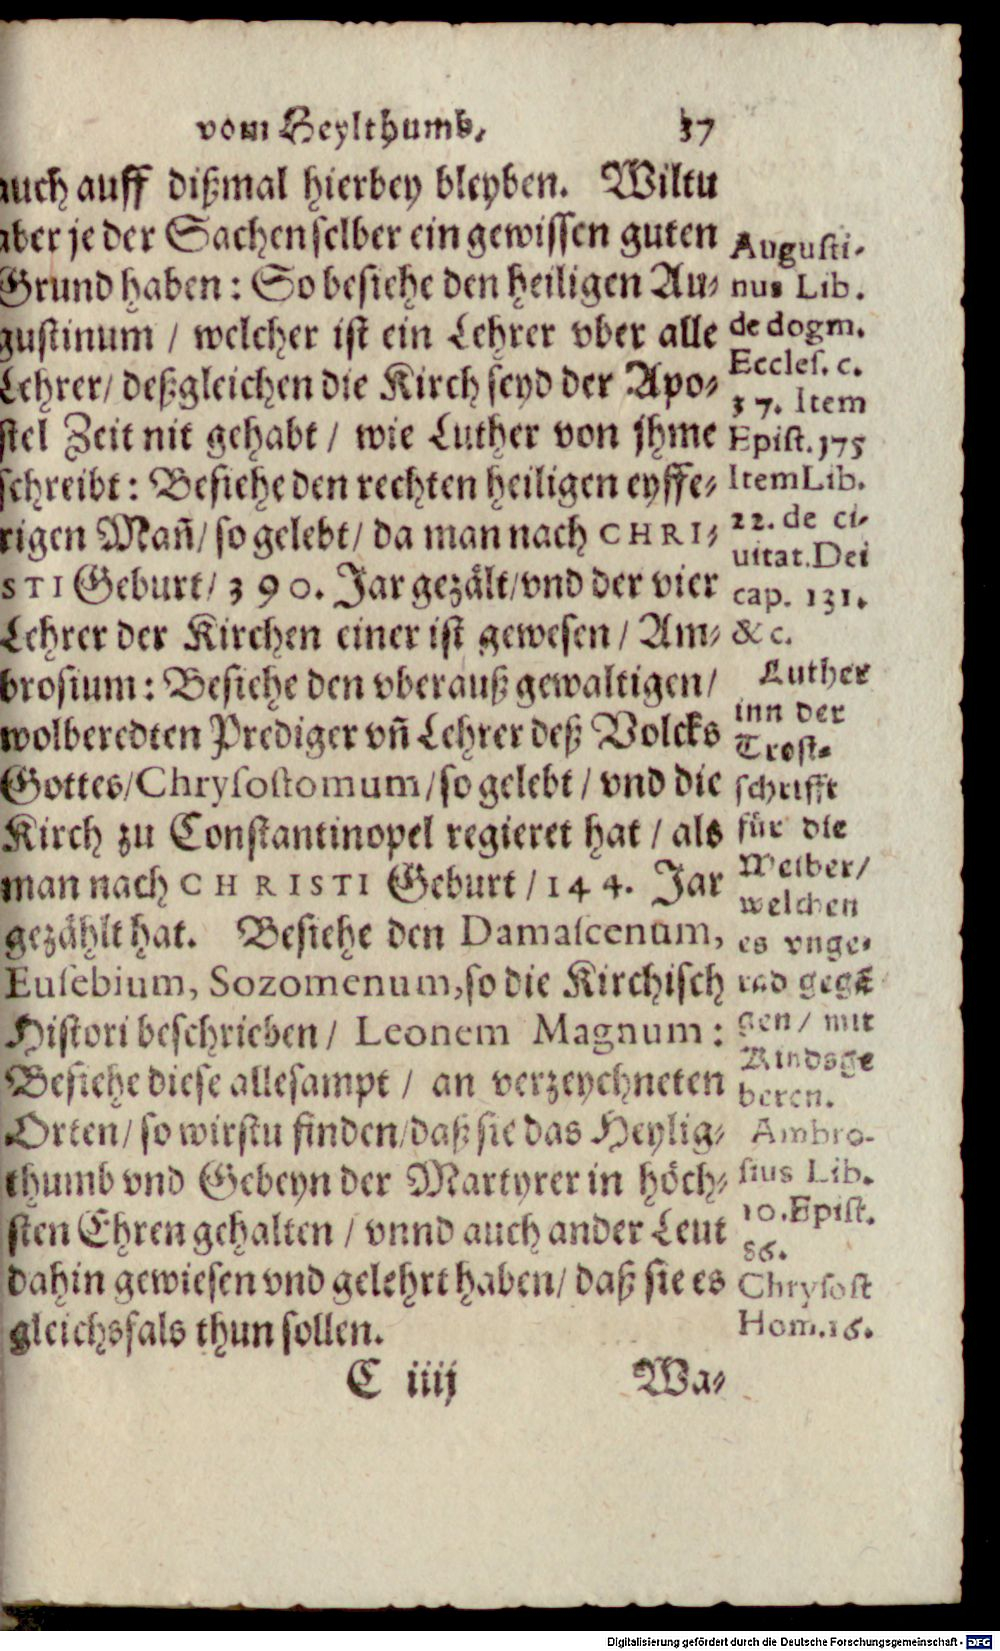 vom Heylthumb. 37
auch auff dißmal hierbey bleyben. Wiltu
aber je der Sachen selber ein gewissen guten
Grund haben: So besiehe den heiligen Au-
gustinum / welcher ist ein Lehrer vber alle
Lehrer/ deßgleichen die Kirch seyd der Apo-
stel Zeit nit gehabt / wie Luther von jhme
schreibt: Besiehe den rechten heiligen eyffe-
rigen Mañ/ so gelebt/ da man nach CHRI-
STI Geburt/ 390. Jar gezält/vnd der vier
Lehrer der Kirchen einer ist gewesen / Am-
brosium: Besiehe den vberauß gewaltigen/
wolberedten Prediger vñ Lehrer deß Volcks
Gottes/Chrysostomum/so gelebt / vnd die
Kirch zu Constantinopel regieret hat / als
man nach CHRISTI Geburt / 144. Jar
gezählt hat. Besiehe den Damascenum,
Eusebium, Sozomenum,so die Kirchisch
Histori beschrieben / Leonem Magnum:
Besiehe diese allesampt / an verzeychneten
Orten/ so wirstu finden/daß sie das Heylig-
thumb vnd Gebeyn der Martyrer in höch-
sten Ehren gehalten / vnnd auch ander Leut
dahin gewiesen vnd gelehrt haben/ daß sie es
gleichsfals thun sollen.
C iiij Wa-
Augusti-
nus Lib.
de dogm.
Eccles. c.
37. Item
Epist.175
Item Lib.
22. de ci-
uitat.Dei
cap. 131.
&c.
Luther
inn der
Trost-
schrifft
für die
Weiber/
welchen
es vnge-
rad gegā
gen/ mit
Kindsge
beren.
Ambro-
sius Lib.
10.Epist.
86.
Chrysost
Hom.16.
Digitalisierung gefördert durch die Deutsche Forschungsgemeinschaft - DFG